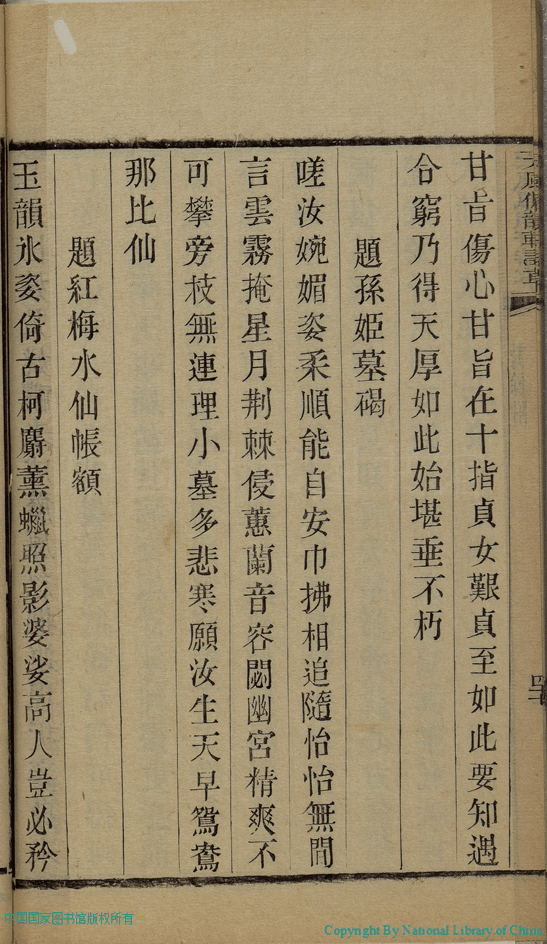 甘旨傷心甘旨在十指貞女艱貞至如此要知遇
合窮乃得天厚如此始堪垂不朽
題孫姬墓碣
嗟汝婉媚姿柔順能自安巾拂相追隨怡怡無間
言雲霧掩星月荆棘侵蕙蘭音容閟幽宮精爽不
可攀旁枝無連理小墓多悲寒願汝生天早鴛鴦
那比仙
題紅梅水仙帳額
玉韻氷姿倚古柯麝薰蠟照影婆娑高人豈必矜
中国国家图书馆版权所有
Copyright By National Library of China